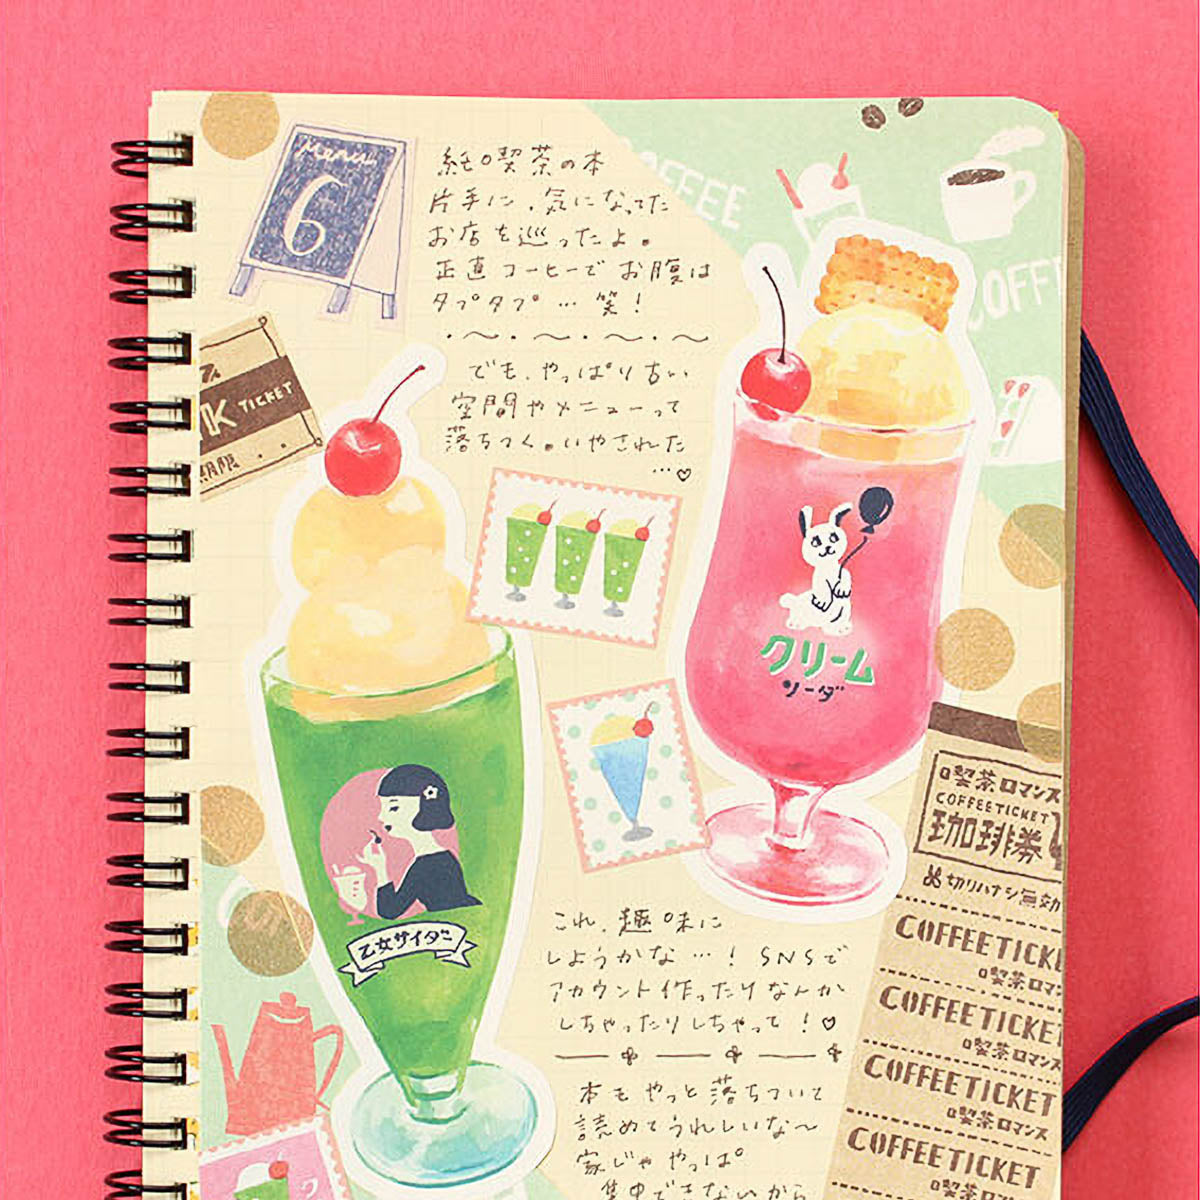 menu
6
純喫茶の本
片手に、気になってた
お店を巡ったよ。
正直コーヒーでお腹は
タプタプ…笑!
でも、やっぱり古い
空間やメニューって
落ちつく。いやされた
…♡
COFFEE
COFFE
TICKET
クリーム
ソーダ
乙女サイダー
喫茶ロマンス
COFFEETICKET
珈琲券
切りハナシ無効
COFFEETICKE
喫茶ロマンス
COFFEETICKET
喫茶ロマンス
COFFEETICKET
喫茶ロマンス
COFFEETICKET
これ、趣味に
しようかな…! SNSで
アカウント作ったりなんか
しちゃったりしちゃって!♡
本もやっと落ちついて
読めてうれしいな〜
家じゃやっぱ
集中できないから